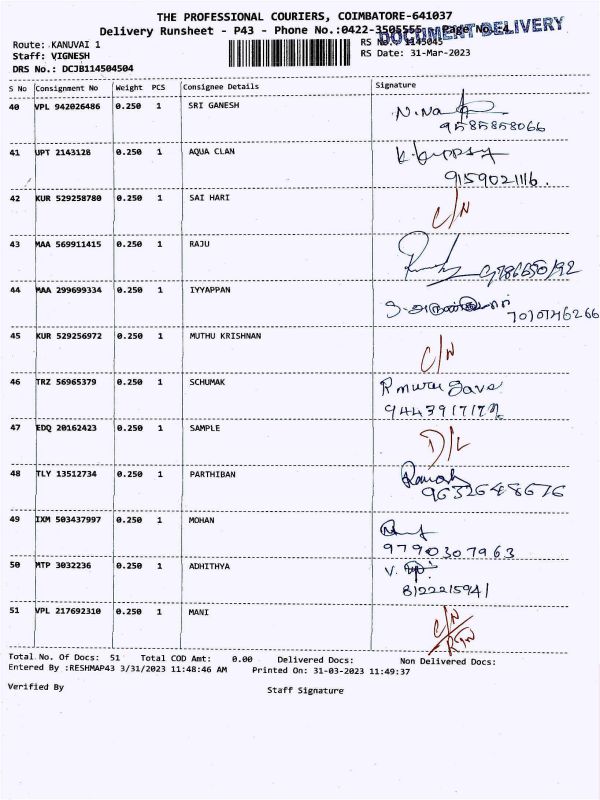 THE PROFESSIONAL COURIERS, COIMBATORE-641037
Delivery Runsheet - P43 - Phone No.:0422-3505555 Page No. 4
DOCUMENT DELIVERY
Route: KANUVAI 1 RS No. 1145045
Staff: VIGNESH RS Date: 31-Mar-2023
DRS No.: DCJB114504504
S No Consignment No Weight PCS Consignee Details Signature
40 VPL 942026486 0.250 1 SRI GANESH
9585858066
41 UPT 2143128 0.250 1 AQUA CLAN
9159021116.
42 KUR 529258780 0.250 1 SAI HARI C/N
43 MAA 569911415 0.250 1 RAJU
44 MAA 299699334 0.250 1 IYYAPPAN
45 KUR 529256972 0.250 1 MUTHU KRISHNAN C/N
46 TRZ 56965379 0.250 1 SCHUMAK
47 EDQ 20162423 0.250 1 SAMPLE D/L
48 TLY 13512734 0.250 1 PARTHIBAN
9632648676
49 IXM 503437997 0.250 1 MOHAN
9790307963
50 MTP 3032236 0.250 1 ADHITHYA
8122215941
51 VPL 217692310 0.250 1 MANI C/N
Total No. Of Docs: 51 Total COD Amt: 0.00 Delivered Docs: Non Delivered Docs:
Entered By :RESHMAP43 3/31/2023 11:48:46 AM Printed On: 31-03-2023 11:49:37
Verified By Staff Signature